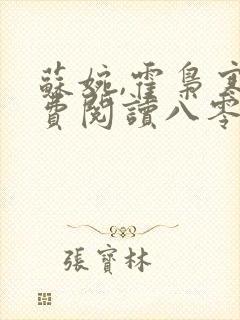 蘇婉,霍梟寒
費閱讀八零
張寶林